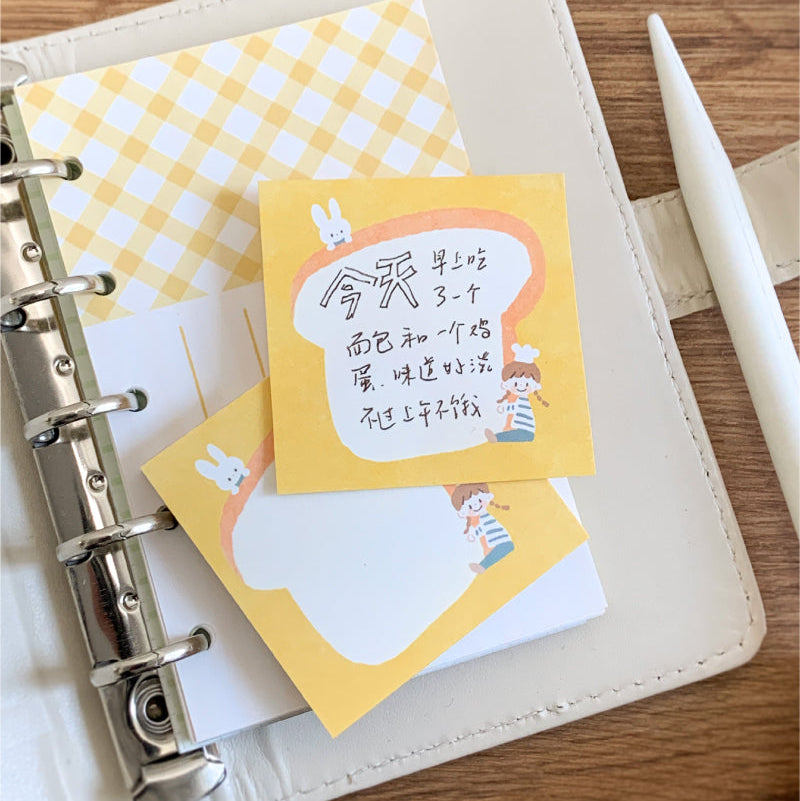 今天 早上吃
了一个
面包和一个鸡
蛋、味道好淡
不过上午不饿